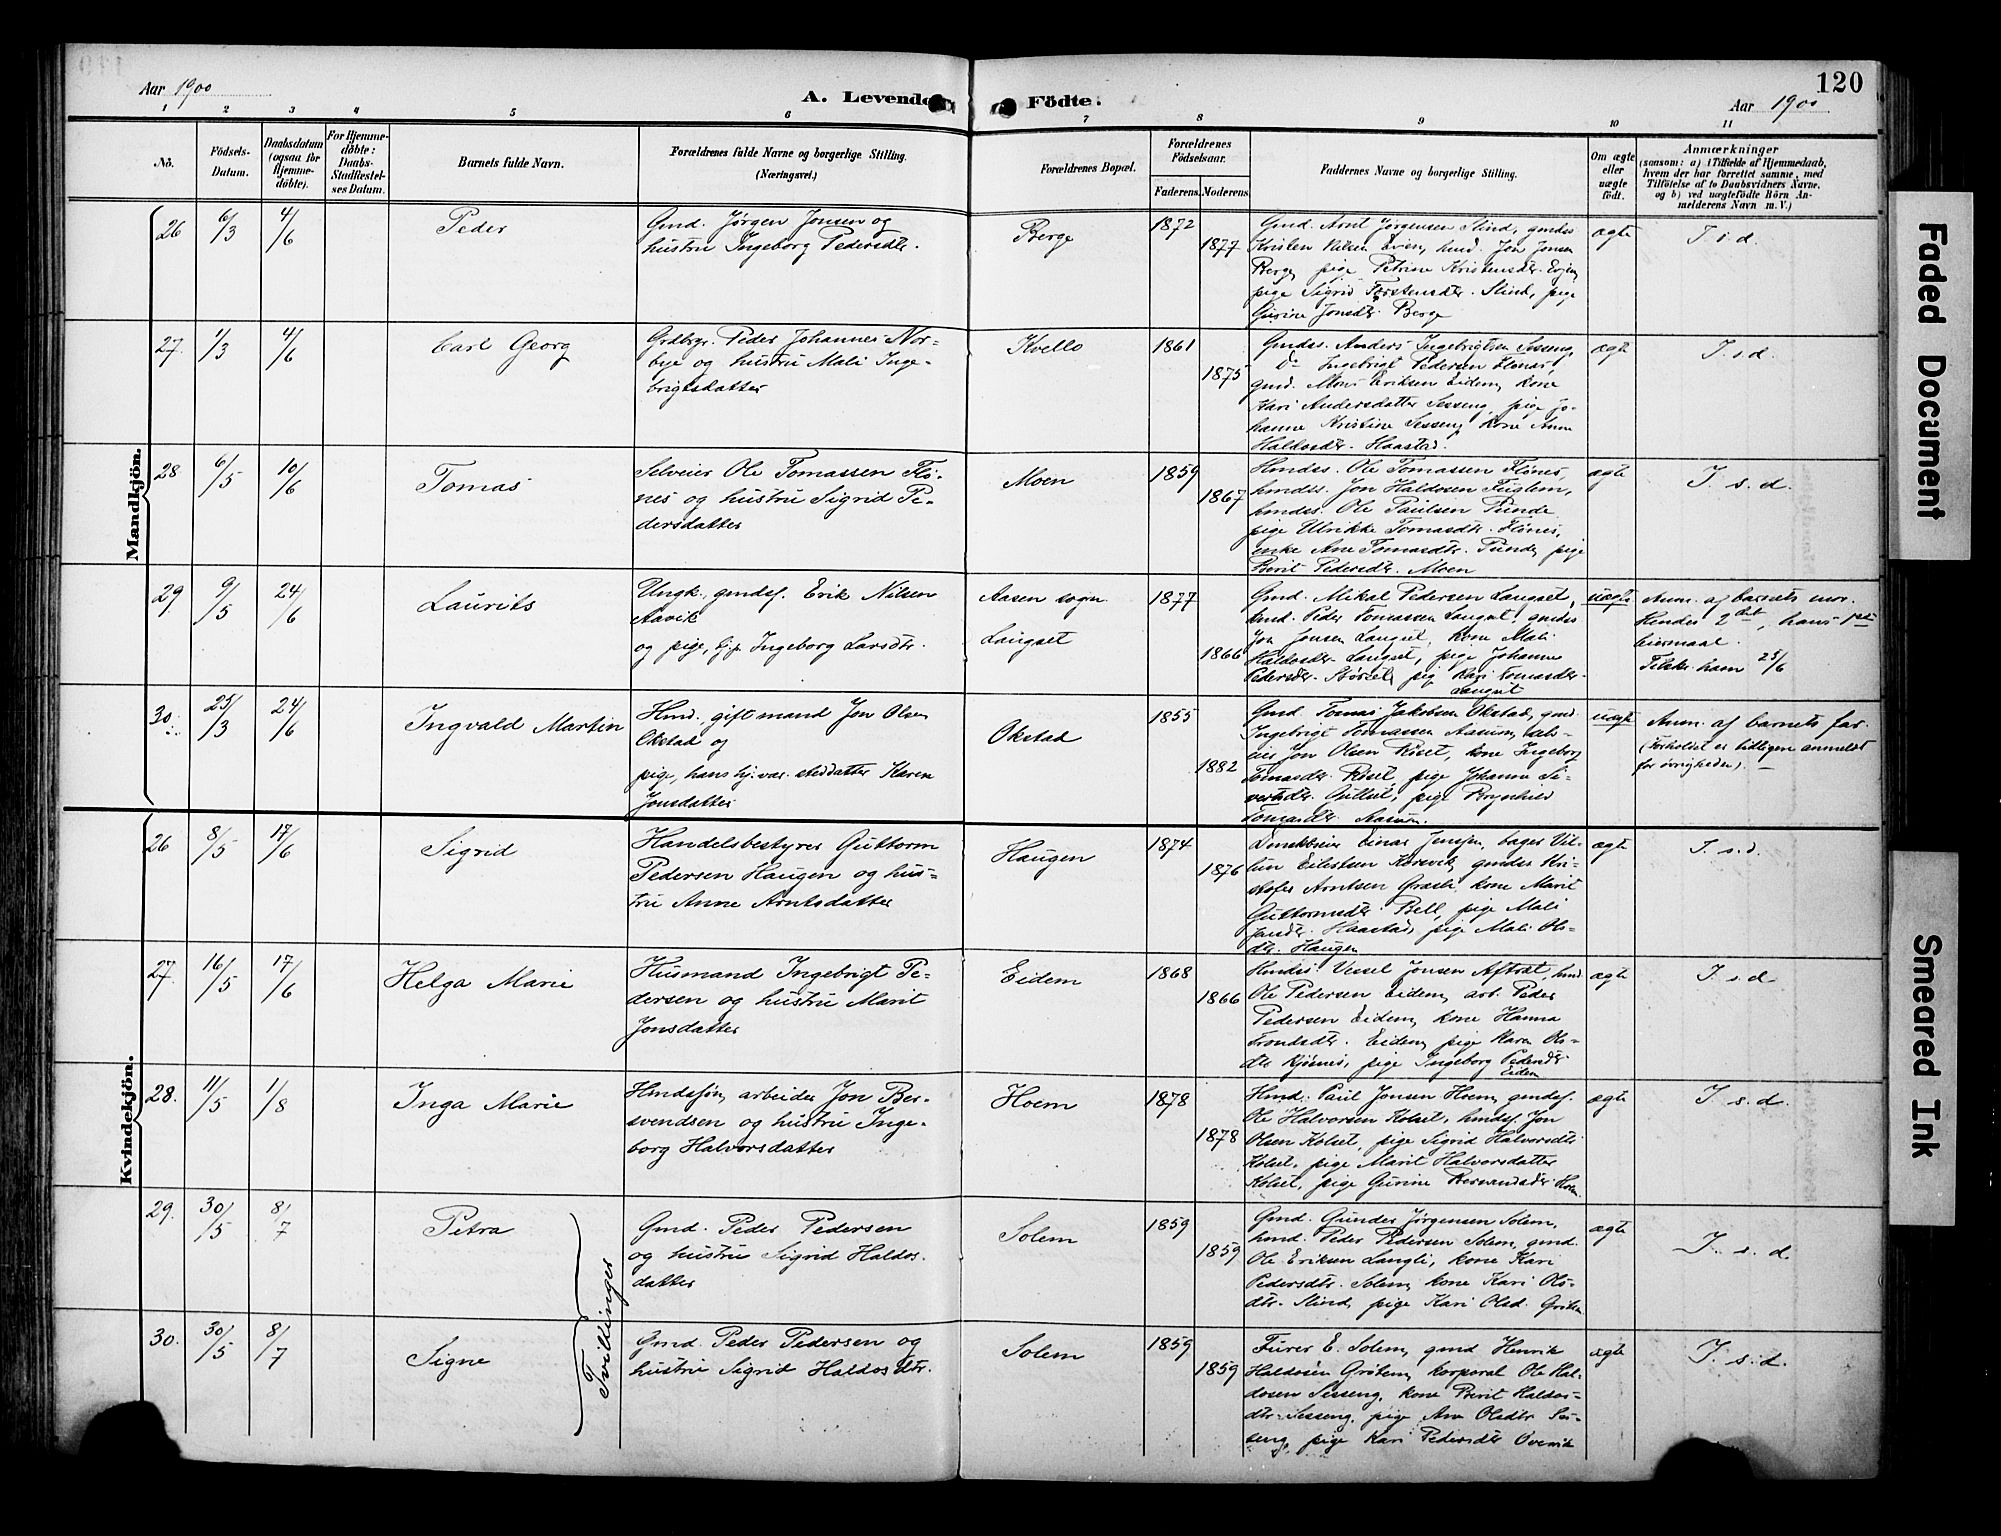 120
Aar 1900
A. Levende Födte.
Aar 1900
1 2 3 4 5 6 7 8 9 10 11
No.
Födsels-
Datum.
Daabsdatum
(ogsaa for
Hjemme-
döbte).
For Hjemme-
döbte:
Daabs-
Stadfæstel-
ses Datum.
Barnets fulde Navn.
Forældrenes fulde Navne og borgerlige Stilling.
(Næringsvei.)
Forældrenes Bopæl.
Forældrenes
Födselsaar.
Faderens. Moderens.
Faddernes Navne og borgerlige Stilling.
Om ægte
eller
uægte
födt.
Anmærkninger
(saasom: a) i Tilfælde af Hjemmedaab,
hvem der har forrettet samme, med
Tilföielse af to Daabsvidners Navne,
og b) ved uægtefödte Börn An-
melderens Navn m. V.)
Mandkjön.
26 6/3 4/6
Peder
Gmd. Jørgen Jonsen og
hustru Ingeborg Pedersdtr.
Berge
1872
1877
Gmd. Arnt Jørgensen Stind, gmdss
Kristen Nilsen Evjen, hmd. Jon Jonsen
Berge, pige Petrine Kristensdtr. Evjen,
pige Sigrid Torstensdtr. Stind, pige
Gurine Jonsdtr. Berge
ægte
I s d.
27. 1/3 4/6
Carl Georg
Grdbrgr. Peder Johannes Nor-
bye og hustru Mali Inge-
brigtsdatter
Kvello
1861
1875
Gmdss. Anders Ingebrigtsen Sesseng,
Do Ingebrigt Pedersen Flønæs,
gmd. Mons Eriksen Eidem, kone
Kari Andersdatter Sesseng, pige Jo-
hanne Kristine Sesseng, kone Anne
Haldosdtr. Haastad.
ægte
I. s. d.
28 6/5 10/6
Tomas
Selveier Ole Tomassen Flø-
nes og hustru Sigrid Pe-
dersdatter
Moen
1859
1867
Hmdss. Ole Tomassen Flønes,
hmdss. Jon Haldosen Fuglem,
hmdss. Ole Paulsen Kunde,
pige Ulrikke Tomasdtr. Flønes,
enke Ane Tomasdtr. Kunde, pige
Berit Pedersdtr. Moen
ægte
I. s. d.
29 9/5 24/6
Laurits
Ungk., gmdsf. Erik Nilsen
Aavik
og pige, Ingeborg Larsdtr.
Aasen sogn.
Langset
1877
1866
Gmd. Mikal Pedersen Langset,
hmd. Peder Tomassen Langset, gmdss
Jon Jonsen Langset, kone Mali
Haldosdtr. Langset, pige Johanne
Pedersdtr. Størset, pig. Kari Tomasdtr.
Langset
uægte
Anm. af barnets mor.
Hendes 2det, hans 1ste
leiermaal.
25/6
30. 25/3 24/6
Ingvald Martin
Hmd., gift mand Jon Olsen
Okstad og
pige, hans hj.vær. steddatter Karen
Jonsdatter
Okstad
1855
1882
Gmd. Tomas Jakobsen Okstad, gmd.
Ingebrigt Tomassen Aasum, selv-
eier Jon Olsen Røset, kone Ingeborg
Tomasdtr. Røset, pige Johanne Si-
vertsdtr. Gullset, pige Brynhild
Tomasdtr. Aasum.
uægte
Anm. af barnets far.
(Forholdet er tidligere anmeldt
for øvrigheden). —
Kvindekjön.
26 8/5 17/6
Sigrid
Handelsbestyrer Guttorm
Pedersen Haugen og hus-
tru Anne Arntsdatter
Haugen
1874
1876
Einar Jensen, bager Vil-
Korsvik, gmdss Kri-
stofer Arntsen Græsli, kone Marit
Guttormsdtr. Bell, pige Mali
Jansdtr. Haastad, pige Mali Ols-
dtr. Haugen
ægte
I. s. d.
27. 16/5 17/6
Helga Marie
Husmand Ingebrigt Pe-
dersen og hustru Marit
Jonsdatter
Eidem
1868
1866
Hmdss Vessel Jonsen Aftret, hmd
Ole Pedersen Eidem, arb. Peder
Pedersen Eidem, kone Hanna
Trondsdtr. Eidem, pige Karen Ols-
dtr Kjøsnes, pige Ingeborg Pedersdtr
Eidem
ægte
I. s. d
28. 11/5 1/8
Inga Marie
Hmdssøn, arbeider Jon Ber-
svendsen og hustru Inge-
borg Halvorsdatter
Hoem
1878
1878
Hmd. Paul Jonsen Hoem, gmdsf.
Ole Halvorsen Kolset, hmdsf. Jon
Olsen Kolset, pige Sigrid Halvorsdtr.
Kolset, pige Marit Halvorsdatter
Kolset, pige Gurine Bersvendsdtr Hoem
ægte
I. s. d.
29. 30/5 8/7
Petra
Tvillinger
Gmd. Peder Pedersen
og hustru Sigrid Haldos-
datter
Solem
1859
1859
Gmd. Gunder Jørgensen Solem,
hmd. Peder Pedersen Solem, gmd.
Ole Eriksen Langli, kone Kari
Pedersdtr. Solem, kone Kari Ols-
dtr. Stind, pige Kari Olsd. Grøtem
ægte
I. s. d.
30. 30/5 8/7
Signe
Gmd. Peder Pedersen og
hustru Sigrid Haldosdtr.
Solem
1859
1859
Furer E. Solem, gmd Henrik
Haldosen Grøtem, korporal Ole Hal-
dosen Sesseng, kone Berit Haldos-
dtr Sesseng, pige Ane Olsdtr Ses-
seng, pige Kari Pedersdtr Overvik
ægte
I. s. d.
Faded Document
Smeared Ink